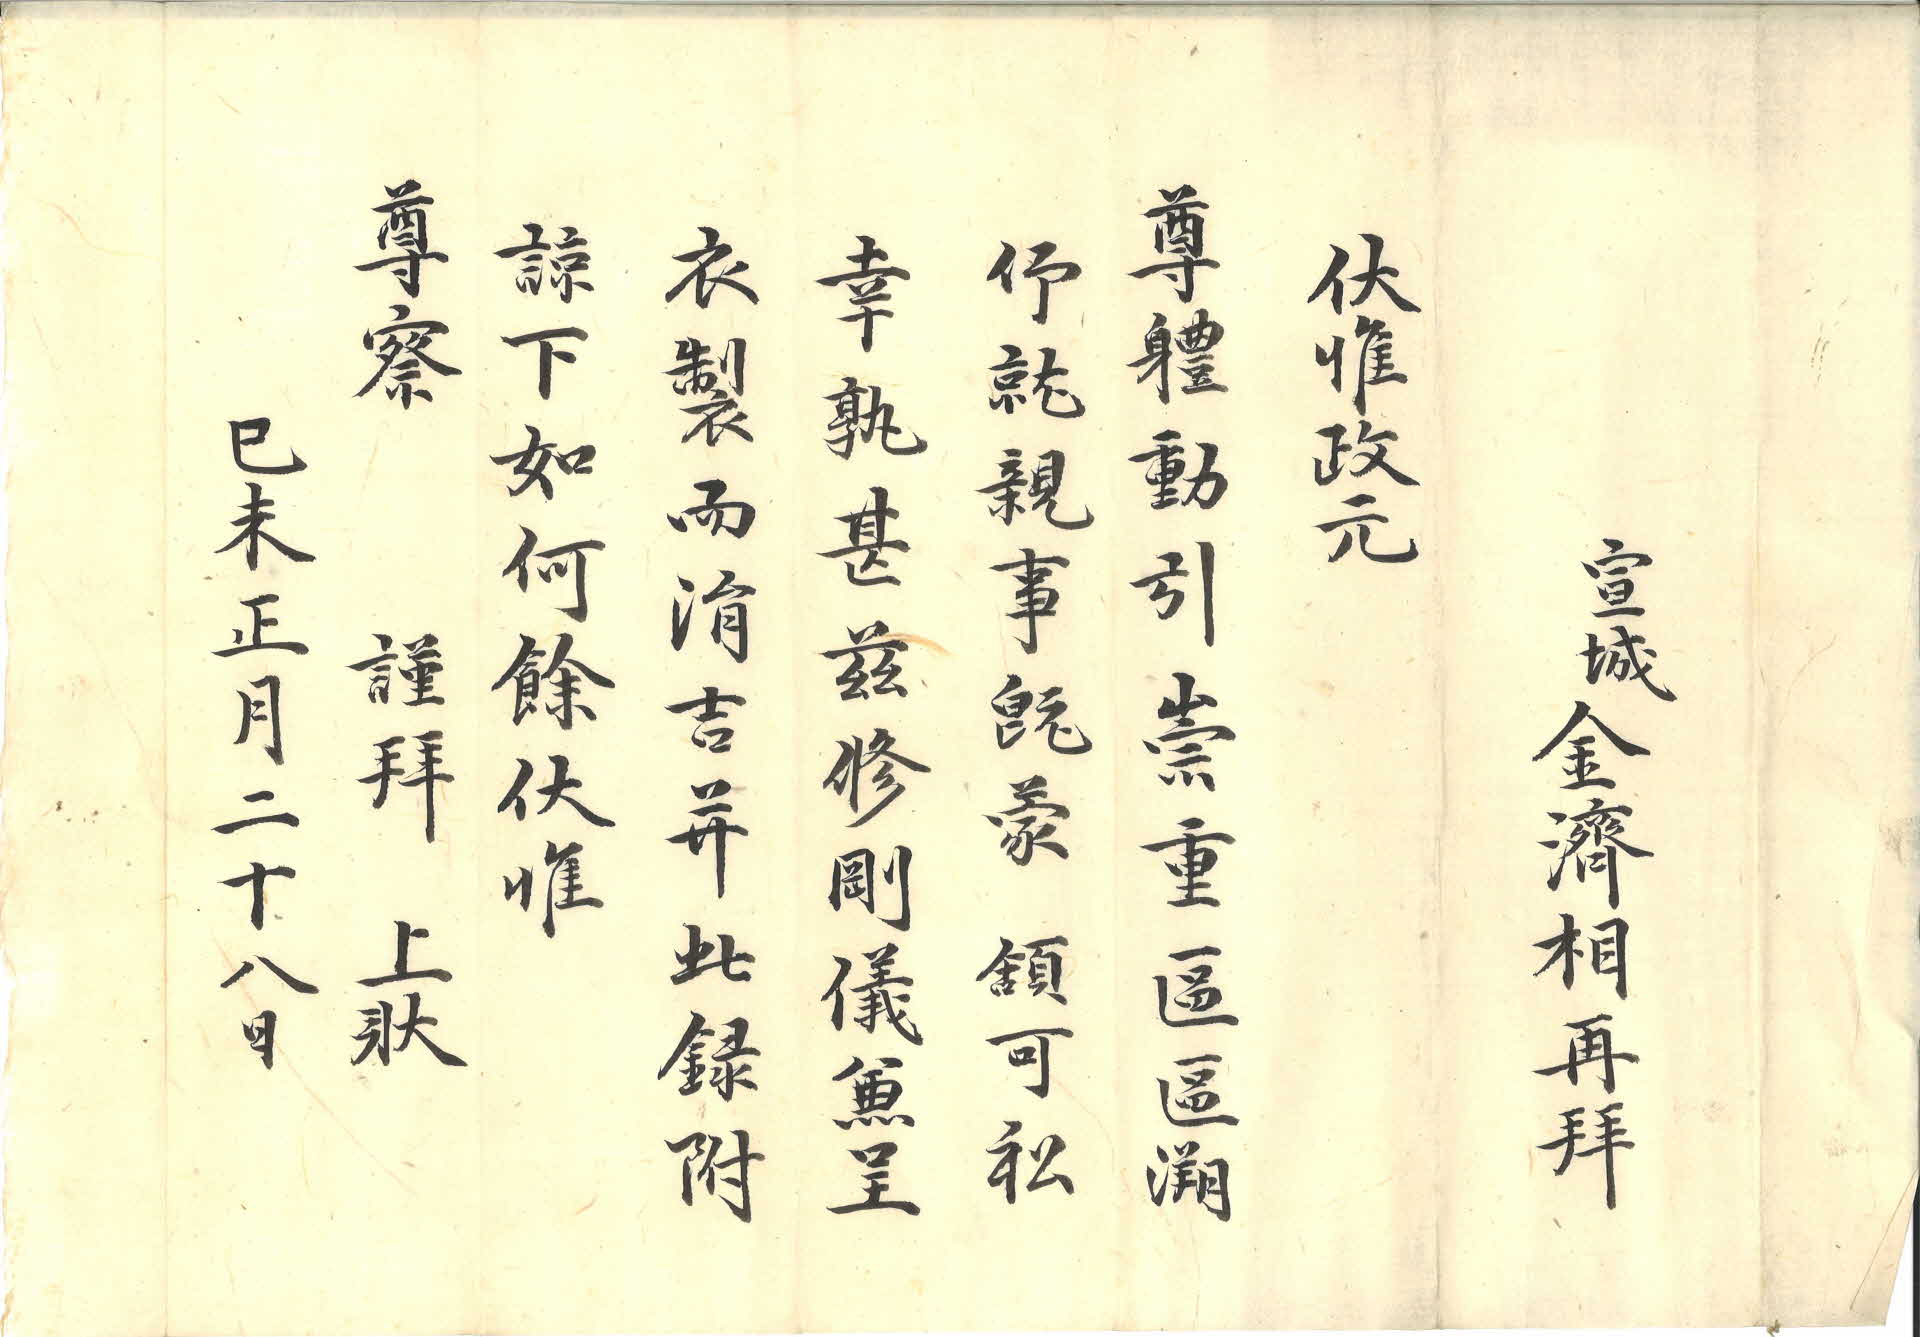 宣城金濟相再拜
伏惟政元
尊體動引崇重區區溯
伃就親事旣蒙 頷可私
幸孰甚玆修剛儀兼呈
衣製而涓吉幷此錄附
諒下如何餘伏惟
尊察 謹拜 上狀
己未正月二十八日